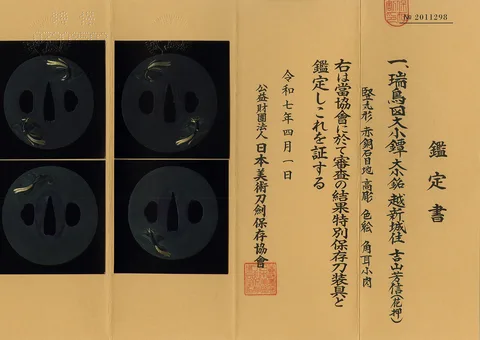 № 2011298
鑑定書
一、瑞鳥図大小鐔 大小銘 越前城住 吉山芳信(花押)
竪丸形 赤銅石目地 高彫 色絵 角耳小肉
右は當協會に於て審査の結果特別保存刀装具と
鑑定しこれを証する
令和七年四月一日
公益財團法人 日本美術刀劍保存協會